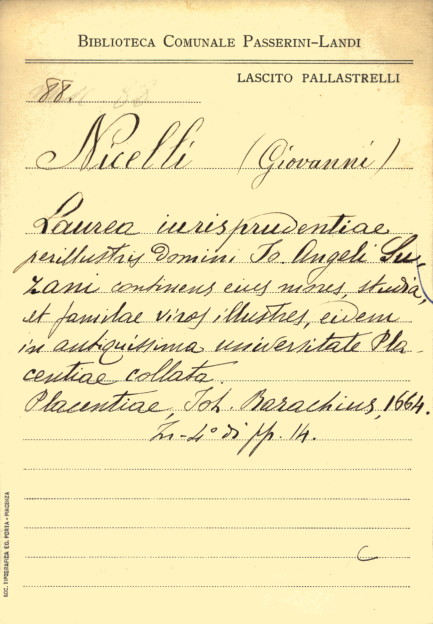 BIBLIOTECA COMUNALE PASSERINI-LANDI
LASCITO PALLASTRELLI
88.
Nicelli (Giovanni)
Laurea iurisprudentiae
perillustris Domini Jo. Angeli Su-
zani continens eius mores, studia,
et familae viros illustres, eidem
in antiquissima universitate Pla-
centiae collata.
Placentiae, Joh. Barachius, 1664.
In-4° di pp. 14.
C
SOC. TIPOGRAFICA ED. PORTA - PIACENZA